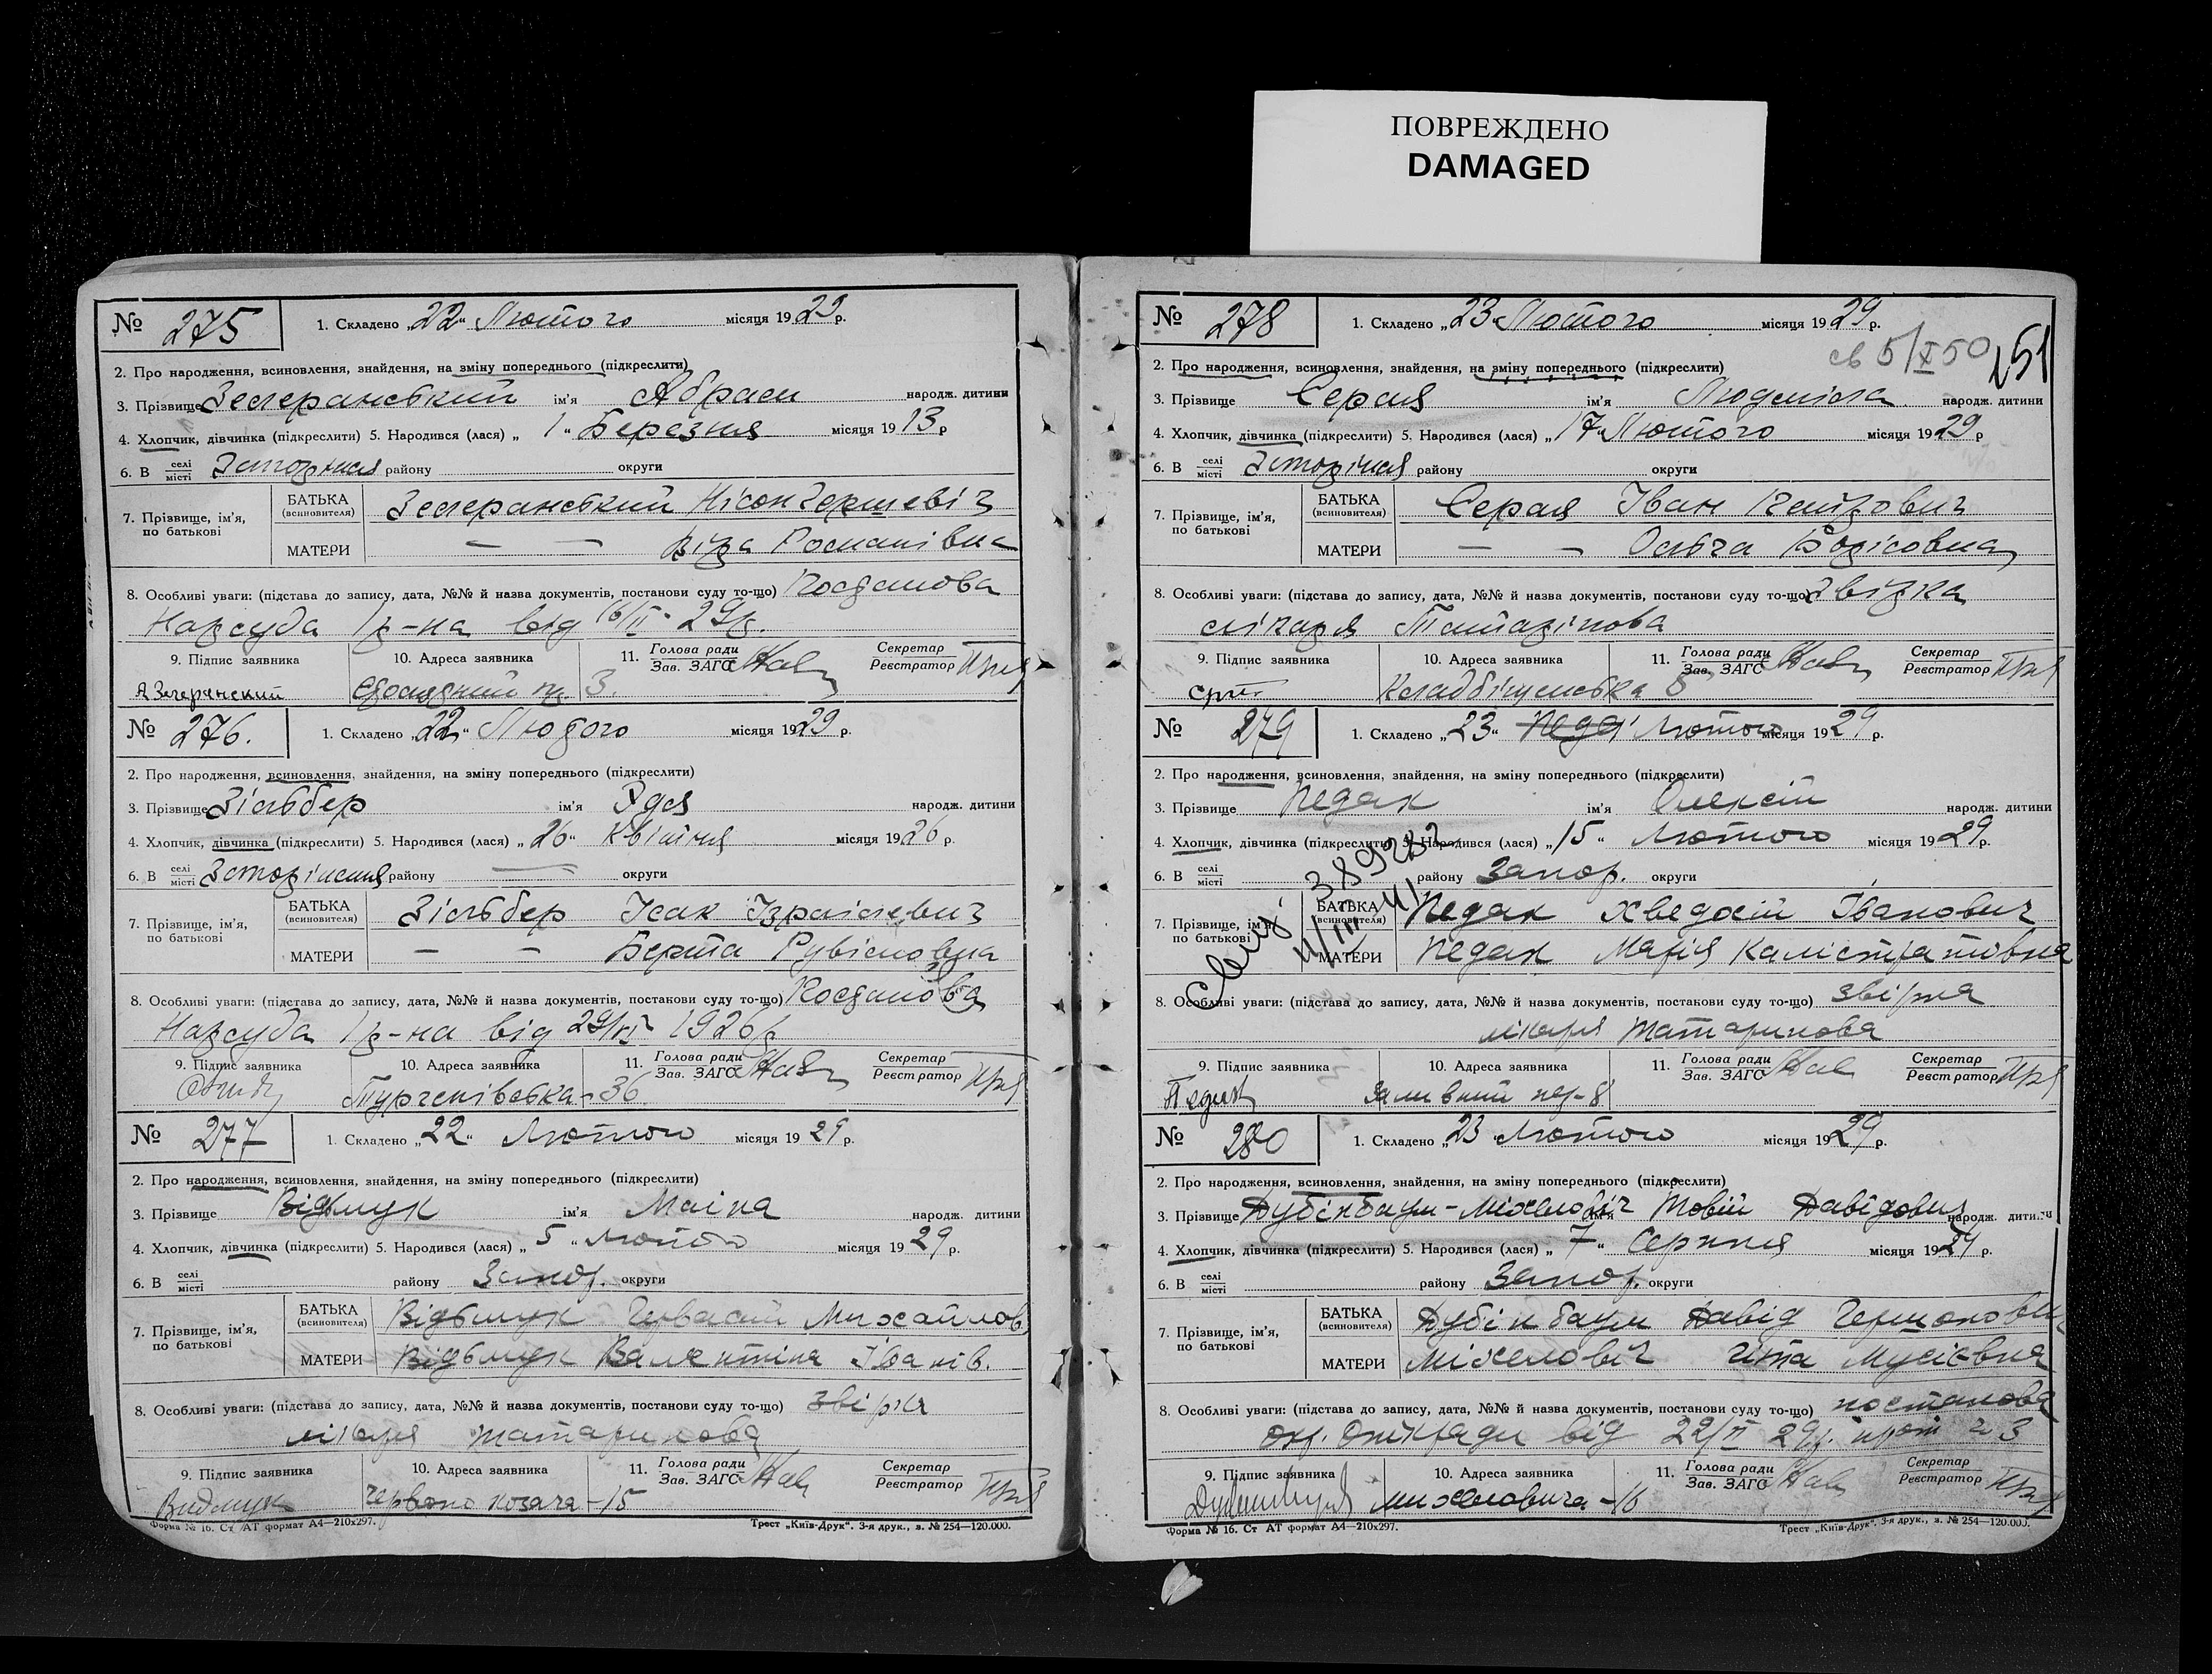 ПОВРЕЖДЕНО
DAMAGED
№ 275 1. Складено „22“ Лютого місяця 1929 р.
2. Про народження, всиновлення, знайдення, на зміну попереднього (підкреслити)
3. Прізвище Зегеранський ім'я Абрам народж. дитини
4. Хлопчик, дівчинка (підкреслити) 5. Народився (лася) „1“ Березня місяця 1913 р
6. В селі місті району округи
7. Прізвище, ім'я, по батькові
БАТЬКА (всиновителя) Зегеранський Нісон Гершевіч
МАТЕРИ — — Віра Романівна
8. Особливі уваги: (підстава до запису, дата, №№ й назва документів, постанови суду то-що) Постанова
Нарсуда 1 р-на від 16/II-29р.
9. Підпис заявника 10. Адреса заявника 11. Голова ради Зав. ЗАГС Секретар Реєстратор
А Зегеранский 3.
№ 276. 1. Складено „22“ Лютого місяця 1929 р.
2. Про народження, всиновлення, знайдення, на зміну попереднього (підкреслити)
3. Прізвище Зільбер ім'я народж. дитини
4. Хлопчик, дівчинка (підкреслити) 5. Народився (лася) „26“ Квітня місяця 1926 р.
6. В селі місті району — округи
7. Прізвище, ім'я, по батькові
БАТЬКА (всиновителя) Зільбер Ісак Ізраілевич
МАТЕРИ — — Берта Рувіновна
8. Особливі уваги: (підстава до запису, дата, №№ й назва документів, постанови суду то-що) Постанова
Нарсуда 1 р-на від 1926р
9. Підпис заявника 10. Адреса заявника 11. Голова ради Зав. ЗАГС Секретар Реєстратор
Тургенівська-36
№ 277 1. Складено „22“ Лютого місяця 1929 р.
2. Про народження, всиновлення, знайдення, на зміну попереднього (підкреслити)
3. Прізвище Відьмук ім'я Маіна народж. дитини
4. Хлопчик, дівчинка (підкреслити) 5. Народився (лася) „5“ Лютого місяця 1929 р.
6. В селі місті району Запор. округи
7. Прізвище, ім'я, по батькові
БАТЬКА (всиновителя) Відьмук Гервасій Михайлов.
МАТЕРИ Відьмук Валентіна Іванів.
8. Особливі уваги: (підстава до запису, дата, №№ й назва документів, постанови суду то-що)
лікаря Татаринова
9. Підпис заявника 10. Адреса заявника 11. Голова ради Зав. ЗАГС Секретар Реєстратор
Видмук Червоно козача-15
Форма № 16. Ст АТ формат А4—210х297. Трест „Київ-Друк“. 3-я друк., з. № 254—120.000.
№ 278 1. Складено „23“ Лютого місяця 1929 р.
св 5/X 50 151
2. Про народження, всиновлення, знайдення, на зміну попереднього (підкреслити)
3. Прізвище Серая ім'я Людміла народж. дитини
4. Хлопчик, дівчинка (підкреслити) 5. Народився (лася) „17“ Лютого місяця 1929 р
6. В селі місті району округи
7. Прізвище, ім'я, по батькові
БАТЬКА (всиновителя) Серая Іван Петрович
МАТЕРИ — — Ольга Борісовна
8. Особливі уваги: (підстава до запису, дата, №№ й назва документів, постанови суду то-що) Звідка
лікаря Татарінова
9. Підпис заявника 10. Адреса заявника 11. Голова ради Зав. ЗАГС Секретар Реєстратор
Кладбіщенська 8
№ 279 1. Складено „23“ Лютого місяця 1929 р.
2. Про народження, всиновлення, знайдення, на зміну попереднього (підкреслити)
3. Прізвище Педак ім'я Олексій народж. дитини
4. Хлопчик, дівчинка (підкреслити) 5. Народився (лася) „15“ Лютого місяця 1929 р.
6. В селі місті району Запор. округи
7. Прізвище, ім'я, по батькові
БАТЬКА (всиновителя) Педак Хведосій Іванович
МАТЕРИ Педак Марія Калістратівна
8. Особливі уваги: (підстава до запису, дата, №№ й назва документів, постанови суду то-що)
лікаря Татаринова
9. Підпис заявника 10. Адреса заявника 11. Голова ради Зав. ЗАГС Секретар Реєстратор
Педак Заливний пер-8
№ 280 1. Складено „23“ Лютого місяця 1929 р.
2. Про народження, всиновлення, знайдення, на зміну попереднього (підкреслити)
3. Прізвище Дубінбаум-Міхелович ім'я Товій Давідович народж. дитини
4. Хлопчик, дівчинка (підкреслити) 5. Народився (лася) „7“ Серпня місяця 19 р.
6. В селі місті району Запор. округи
7. Прізвище, ім'я, по батькові
БАТЬКА (всиновителя) Дубінбаум Давід Гершонович
МАТЕРИ Міхеловіч Гіта Мусієвна
8. Особливі уваги: (підстава до запису, дата, №№ й назва документів, постанови суду то-що) постанова
від 22/II 29р. прот № 3
9. Підпис заявника 10. Адреса заявника 11. Голова ради Зав. ЗАГС Секретар Реєстратор
Михеловича-16
Форма № 16. Ст АТ формат А4—210х297. Трест „Київ-Друк“. 3-я друк., з. № 254—120.000.